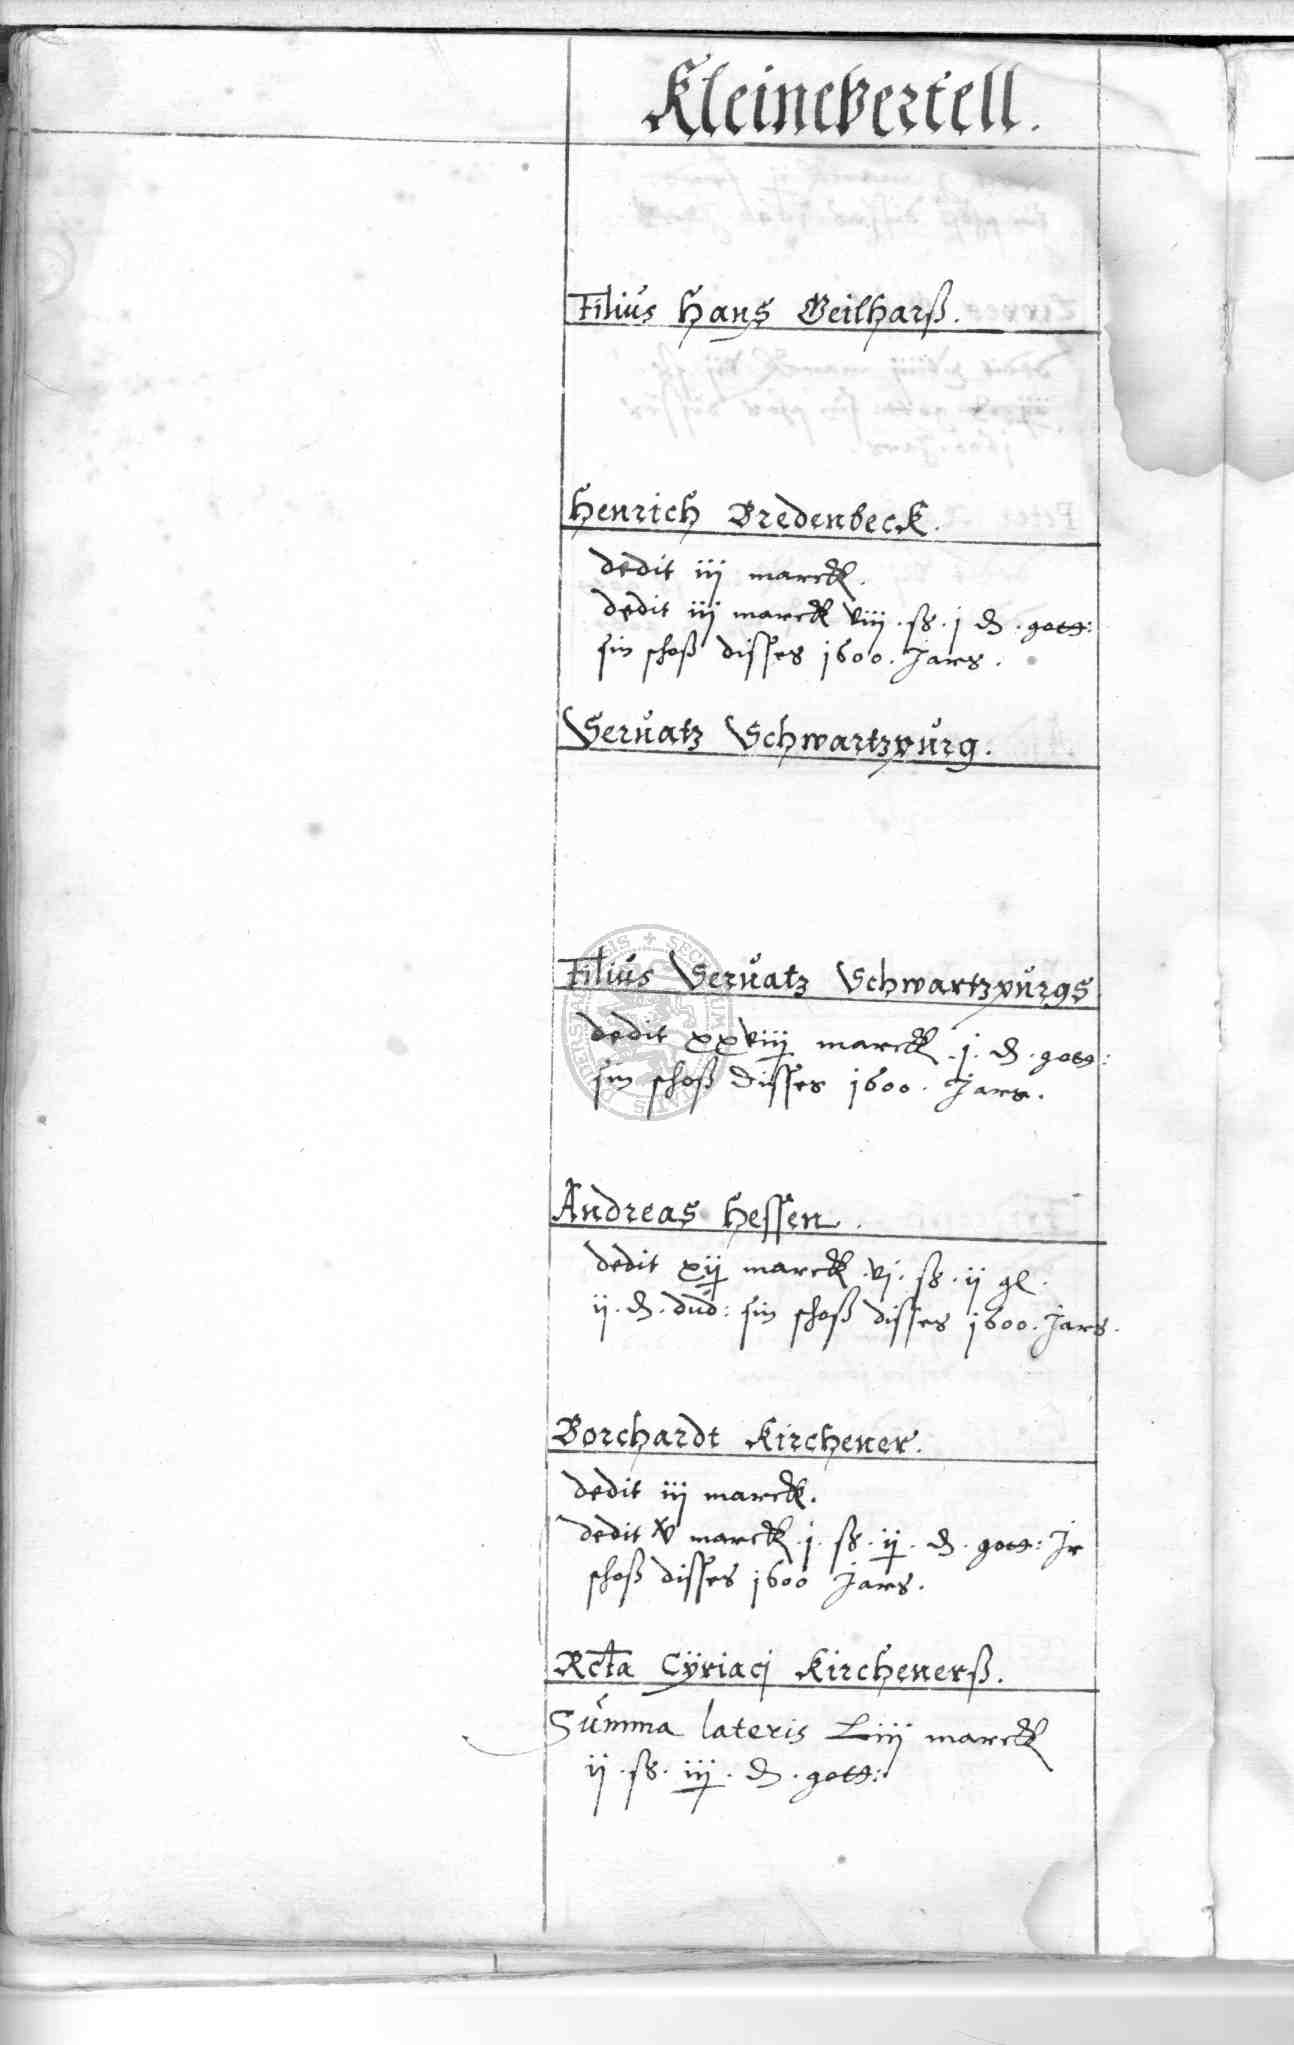 Kleinevertell.
Filius Hans Geilharß.
Henrich Bredenbeck.
dedit iij marck.
dedit iij marck viij. ß. j ₰. gott:
sin schoß disses 1600. Jars.
Servatz Schwartzpurg.
Filius Servatz Schwartzpurgs
dedit xxviij marck. j. ₰. gott:
sin schoß disses 1600. Jars.
Andreas Hessen.
dedit xij marck. vj. ß. ij gl.
ij. ₰. dud: sin schoß disses 1600. Jars.
Borchardt Kirchener.
dedit iij marck.
dedit v marck. j. ß. ij. ₰. gott: Jr
schoß disses 1600 Jars.
Rcta Cÿriacj Kircheners̈ß.
Summa lateris Liij marck
ij. ß. iij. ₰. gott: